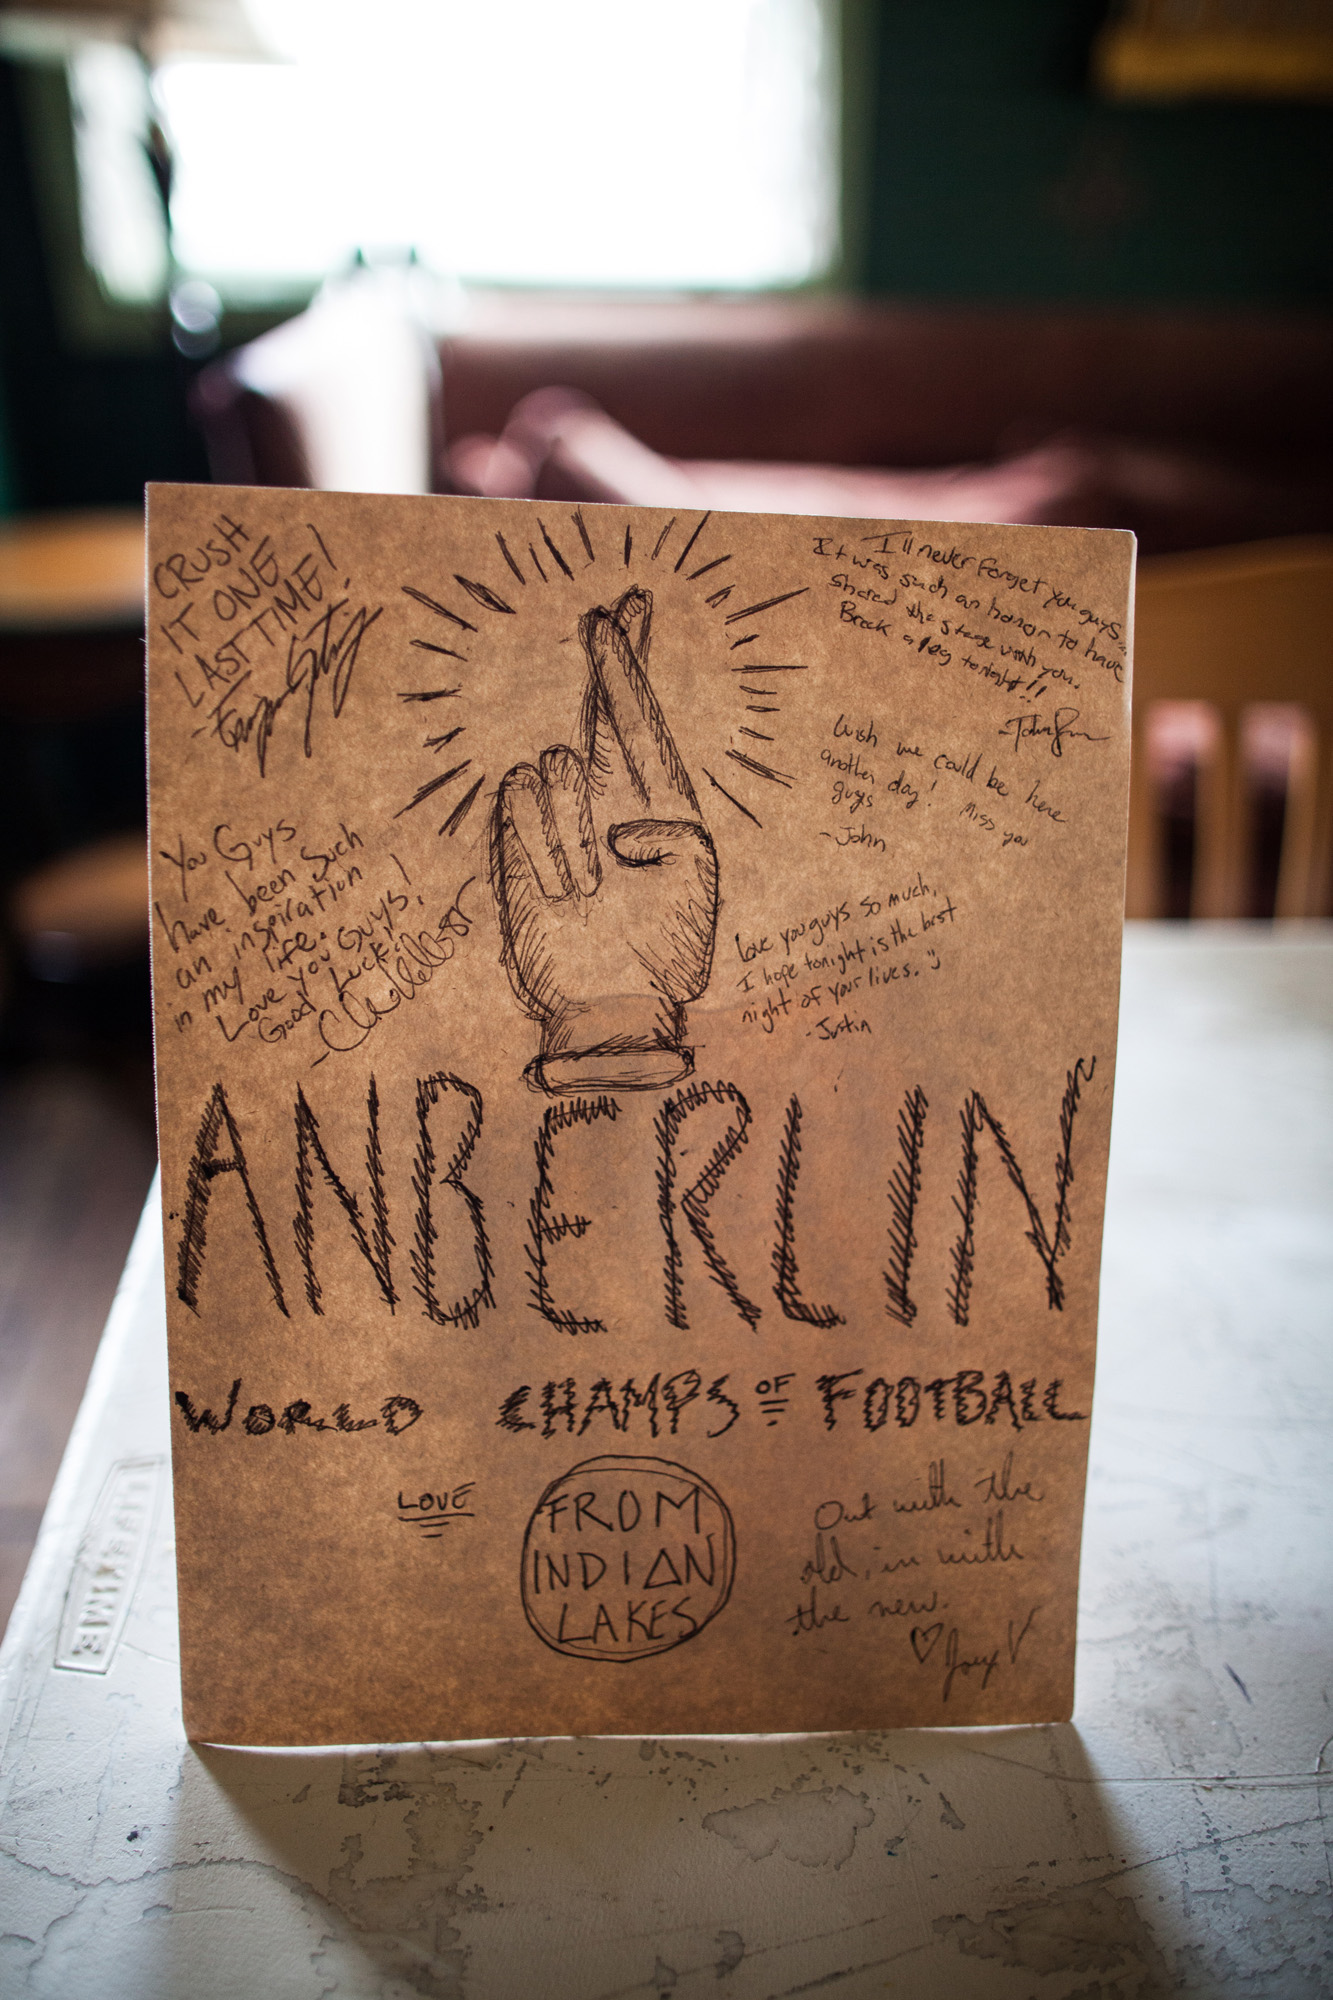 CRUSH
IT ONE
LAST TIME!
I'll never forget you guys
It was such an honor to have
shared the stage with you.
Break a leg tonight!!
Wish we could be here
another day! Miss you
guys
-John
You Guys
have been such
an inspiration
in my life.
Love you Guys!
Good Luck!
Love you guys so much,
I hope tonight is the best
night of your lives. :)
-Justin
ANBERLIN
WORLD CHAMPS OF FOOTBALL
LOVE
FROM
INDIAN
LAKES
Out with the
old, in with
the new.
♡ Joey V